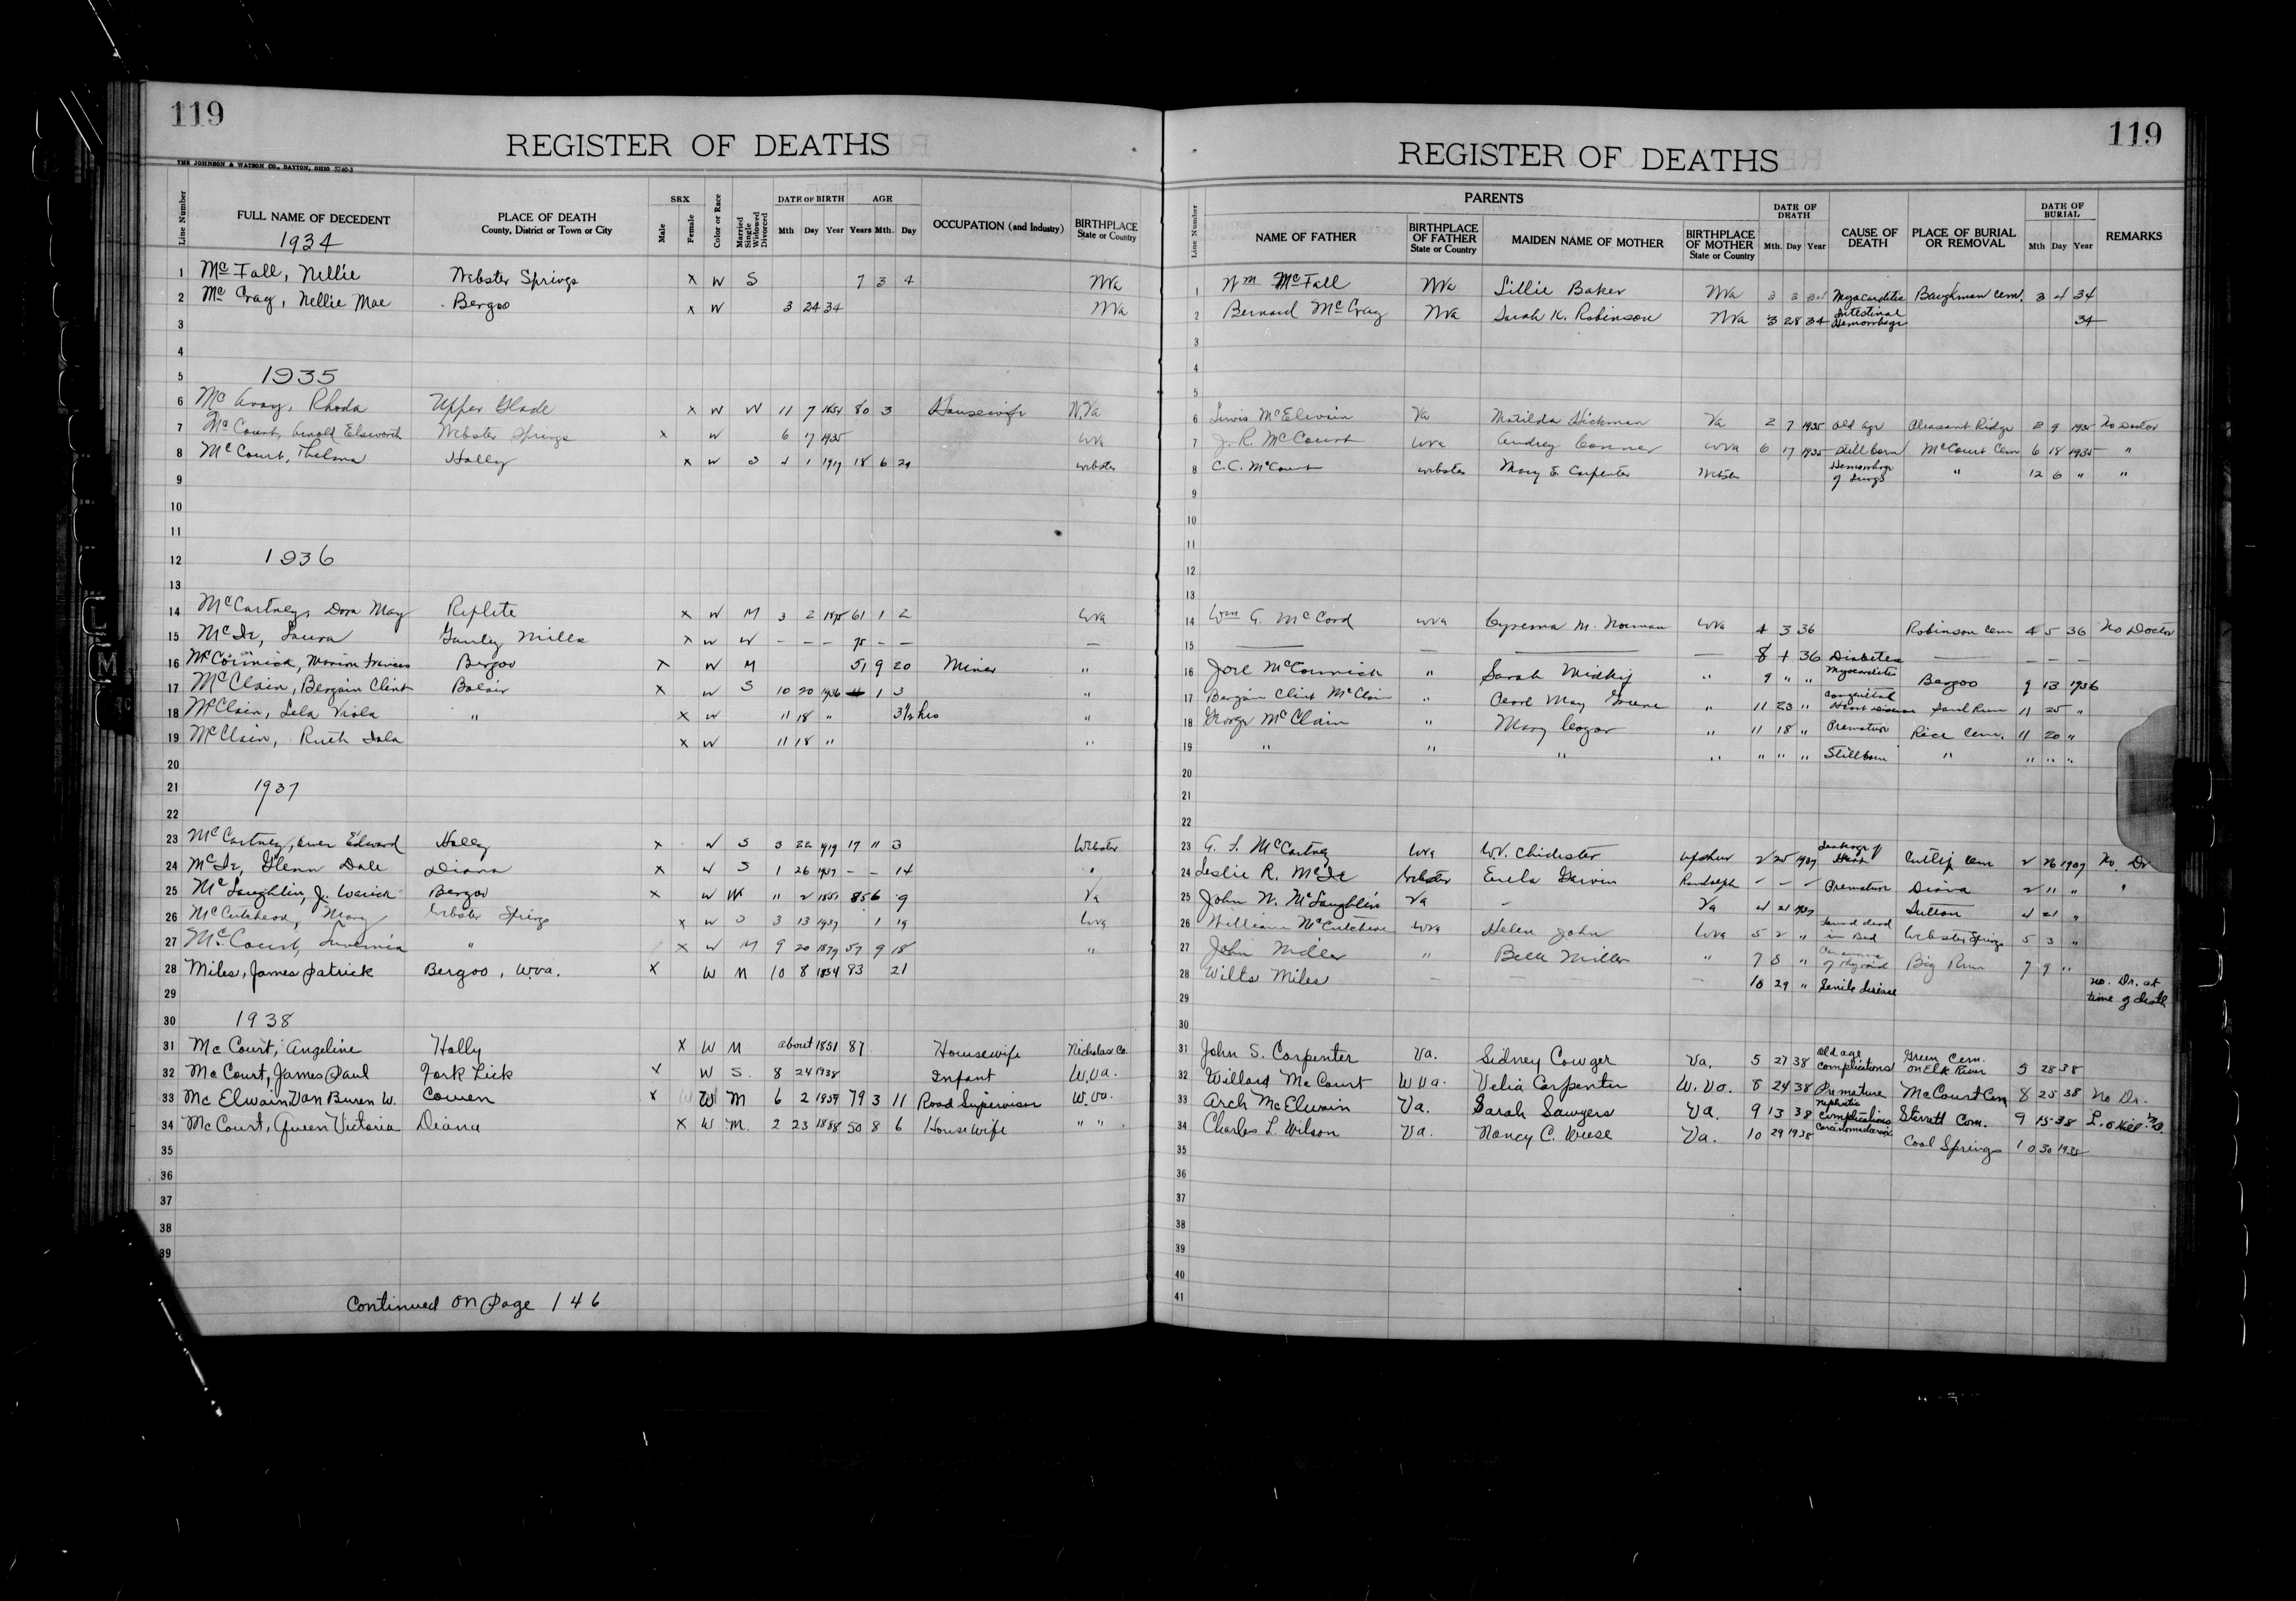 119
REGISTER OF DEATHS
THE JOHNSON & WATSON CO., DAYTON, OHIO 5740-3
Line Number FULL NAME OF DECEDENT PLACE OF DEATH County, District or Town or City SEX Male Female Color or Race Married Single Widowed Divorced DATE OF BIRTH Mth Day Year AGE Years Mth. Day OCCUPATION (and Industry) BIRTHPLACE State or Country
1934
1 McFall, Nellie Webster Springs x W S 7 3 4 WVa
2 McCray, Nellie Mae Bergoo x W 3 24 34 WVa
3
4
5 1935
6 McAvoy, Rhoda Upper Glade x W W 11 7 1854 80 3 Housewife W.Va
7 McCourt, Arnold Elsworth Webster Springs x W 6 17 1935 WVa
8 McCourt, Thelma Holly x W S 4 1 1917 18 6 29 Webster
9
10
11
12 1936
13
14 McCartney, Dora May Replete x W M 3 2 1875 61 1 2 WVa
15 Laura Gauley Mills x W W – – – 75 – – —
16 McCormick, Marion Francis Bergoo x W M 51 9 20 Miner "
17 McClain, Bergain Clint Bolair x W S 10 20 1936 1 3 "
18 McClain, Lela Viola " x W 11 18 " 3½ hrs "
19 McClain, Ruth Iola x W 11 18 " "
20
21 1937
22
23 McCartney, Edward Holly x W S 3 22 1919 17 11 3 Webster
24 Glenn Dale Diana x W S 1 26 1937 – – 14 "
25 McLaughlin, J. Warick Bergoo x W W 11 2 1851 85 6 9 Va
26 McCutcheon, Mary Webster Springs x W S 3 13 1937 1 19 WVa
27 McCourt, " x W M 9 20 1879 57 9 18 "
28 Miles, James Patrick Bergoo, Wva. x W M 10 8 1854 83 21
29
30 1938
31 McCourt, Angeline Holly x W M about 1851 87 Housewife Nicholas Co.
32 McCourt, James Paul Fork Lick x W S. 8 24 1938 Infant W.Va.
33 McElwain Van Buren W. Cowen x W M 6 2 1859 79 3 11 Road Supervisor W.Va.
34 McCourt, Queen Victoria Diana x W M. 2 23 1888 50 8 6 House wife " "
35
36
37
38
39
Continued on page 146
119
REGISTER OF DEATHS
Line Number PARENTS NAME OF FATHER BIRTHPLACE OF FATHER State or Country MAIDEN NAME OF MOTHER BIRTHPLACE OF MOTHER State or Country DATE OF DEATH Mth. Day Year CAUSE OF DEATH PLACE OF BURIAL OR REMOVAL DATE OF BURIAL Mth Day Year REMARKS
1 Wm McFall WVa Lillie Baker WVa 3 3 34 Myocarditis Baughman Cem. 3 4 34
2 Bernard McCray WVa Sarah K. Robinson WVa 3 28 34 Intestinal Hemorrhage 34
3
4
5
6 Lewis McElwain Va Matilda Hickman Va 2 7 1935 Old age Pleasant Ridge 2 9 1935 No Doctor
7 J. R. McCourt WVa Audrey Conner WVa 6 17 1935 Still born McCourt Cem 6 18 1935 "
8 C.C. McCourt Webster Mary E. Carpenter Webster Hemorrhage of Lungs " 12 6 " "
9
10
11
12
13
14 Wm G. McCord WVa M. Norman WVa 4 3 36 Robinson Cem 4 5 36 No Doctor
15 — — — — 8 1 36 Diabetes — – – –
16 Joel McCormick " Sarah Midkif " 9 " " Myocarditis Bergoo 9 13 1936
17 Bergain Clint McClain " Pearl May Greene " 11 23 " Congenital Heart Disease Run 11 25 "
18 George McClain " Mary Cogar " 11 18 " Premature Rice Cem. 11 20 "
19 " " " " " " " Stillborn " " " "
20
21
22
23 G. L. McCartney WVa Chidester Upshur 2 25 1937 Leakage of Heart Cutlip Cem 2 26 1937 No. Dr
24 Leslie R. Webster Randolph – – – Premature Diana 2 11 " "
25 John W. McLaughlin Va – Va 4 21 1937 Sutton 4 21 "
26 William McCutcheon WVa Helen John WVa 5 2 " Found dead in Bed Webster Springs 5 3 "
27 John Miller " Bell Miller " 7 8 " of thyroid Big Run 7 9 "
28 Wilts Miles — — 10 29 " Senile disease no. Dr. at
29 time of death
30
31 John S. Carpenter Va. Sidney Cowger Va. 5 27 38 Old age complications Green Cem. on Elk River 5 28 38
32 Willard McCourt W Va. Velia Carpenter W. Va. 8 24 38 Premature McCourt Cem 8 25 38 No Dr.
33 Arch McElwain Va. Sarah Sawyers Va. 9 13 38 nephritis complications Sterrett Cem. 9 15 38
34 Charles L. Wilson Va. Nancy C. Weese Va. 10 29 1938 Cool Springs 10 30 1938
35
36
37
38
39
40
41